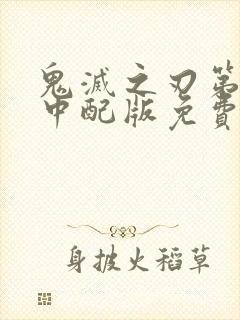 鬼滅之刃第
中配版免費
身披火稻草